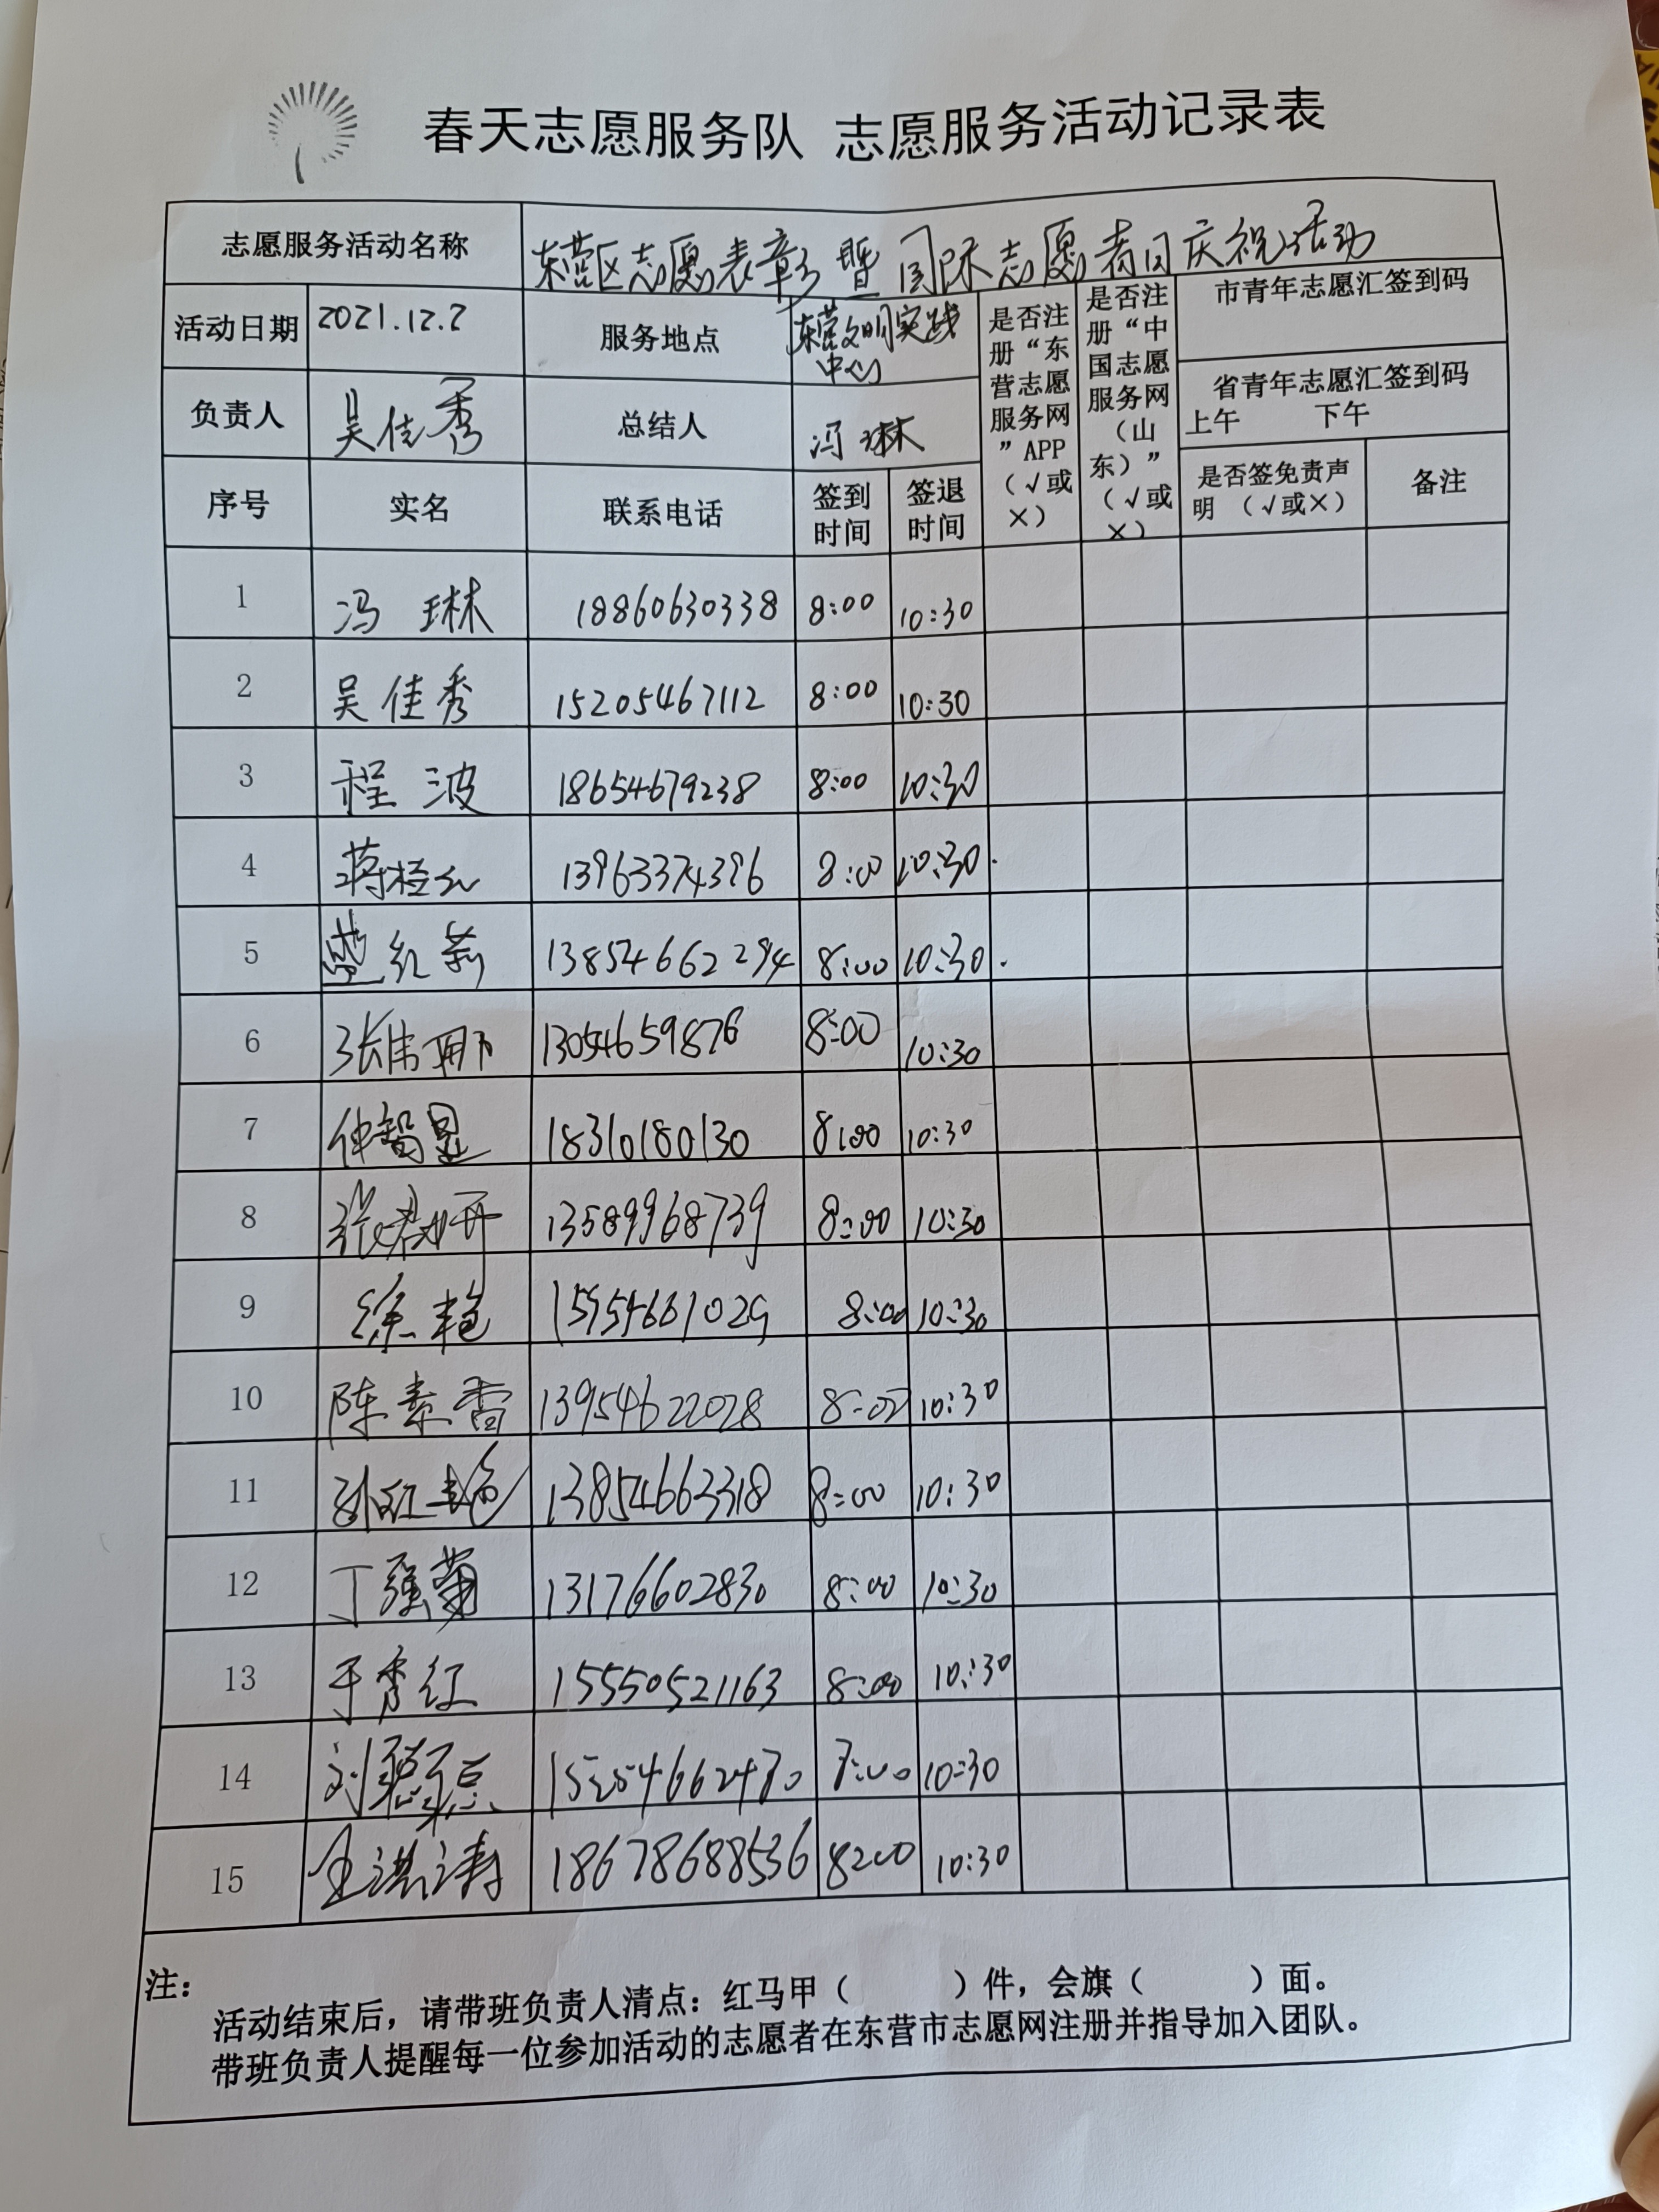 春天志愿服务队 志愿服务活动记录表
志愿服务活动名称 东营区志愿表彰暨国际志愿者日庆祝活动
活动日期 2021.12.2 服务地点 东营文明实践中心 是否注册“东营志愿服务网”APP（√或×） 是否注册“中国志愿服务网（山东）”（√或×） 市青年志愿汇签到码
省青年志愿汇签到码
上午 下午
负责人 吴佳秀 总结人 冯琳
序号 实名 联系电话 签到时间 签退时间 是否签免责声明（√或×） 备注
1 冯琳 18860630338 8:00 10:30
2 吴佳秀 15205467112 8:00 10:30
3 程波 18654679238 8:00 10:30
4 13963374396 8:00 10:30.
5 盛红莉 13854662294 8:00 10:30.
6 张伟娜 13054659876 8:00 10:30
7 仲智昱 18310180130 8:00 10:30
8 张君妍 13589968739 8:00 10:30
9 徐艳 15954661029 8:00 10:30
10 陈素香 13954622028 8:00 10:30
11 孙红艳 13854663318 8:00 10:30
12 丁强菊 13176602830 8:00 10:30
13 于秀红 15550521163 8:00 10:30
14 刘 10:30
15 18678688536 8:00 10:30
注：
活动结束后，请带班负责人清点：红马甲（ ）件，会旗（ ）面。
带班负责人提醒每一位参加活动的志愿者在东营市志愿网注册并指导加入团队。